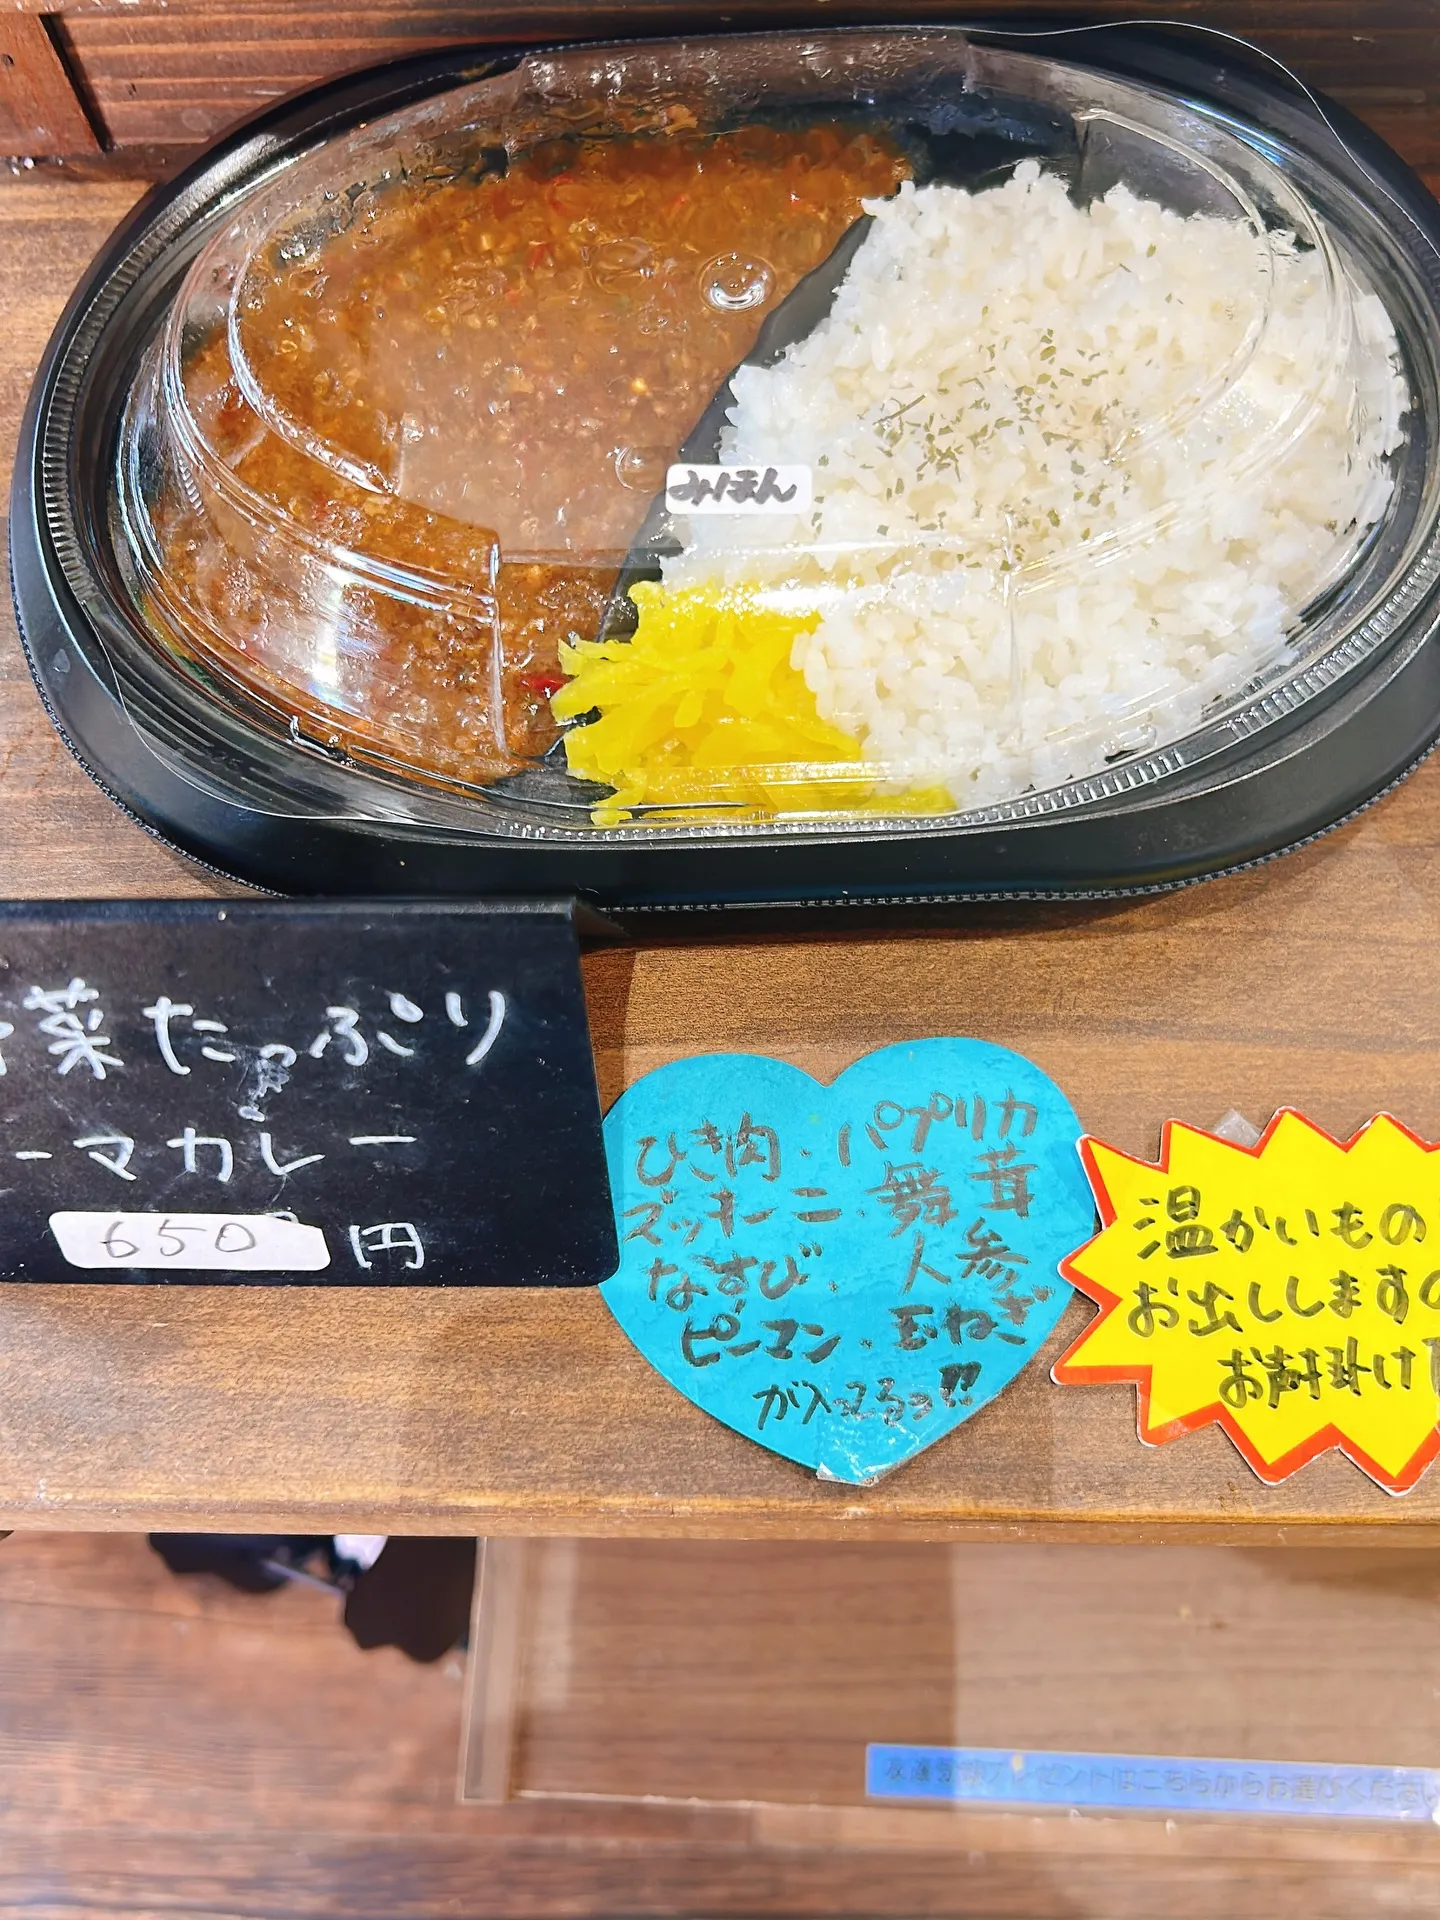 みほん
菜たっぷり
ーマカレー
650円
ひき肉・パプリカ
ズッキーニ・舞茸
なすび・人参
ピーマン・玉ねぎ
が入ってるっ!!
温かいもの
お出ししますの
お声掛け
プレゼントはこちらからお選びください